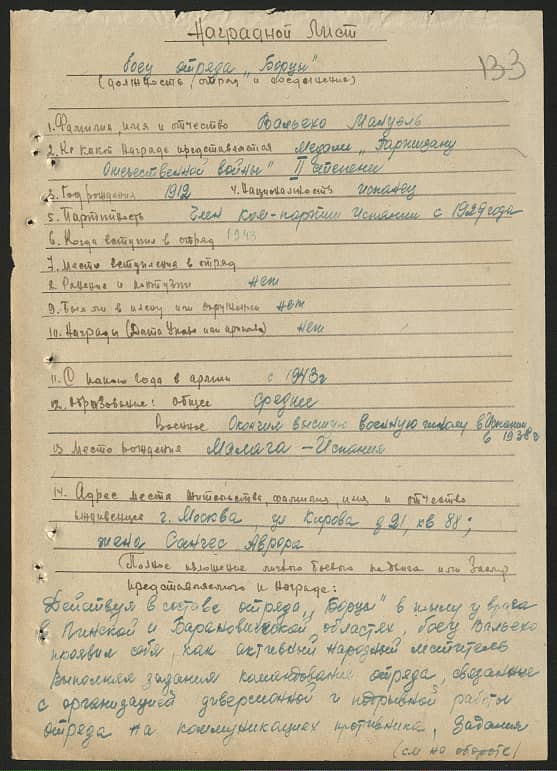 Наградной Лист
133
бойцу отряда „Борцы"
(должность, отряд и соединение)
1. Фамилия, имя и отчество Вальехо Мануэль
2. К какой награде представляется Медали „Партизану
Отечественной войны" II степени
3. Год рождения 1912 4. Национальность испанец
5. Партийность Член ком-партии Испании с 1929 года
6. Когда вступил в отряд 1943
7. Место вступления в отряд
8. Ранение и контузии нет
9. Был ли в плену или окружении нет
10. Награды (Дата Указа или приказа) нет
11. С какого года в армии с 1943 г
12. Образование: общее среднее
Военное Окончил высшую военную школу в Испании
в 1938 г
13. Место рождения Малага - Испания
14. Адрес места жительства, фамилия, имя и отчество
г. Москва, ул Кирова д 21, кв 88;
жена Санчес Аврора
(Полное изложение личного боевого подвига или Заслуг
представляемого к награде:
Действуя в составе отряда „Борцы" в тылу у врага
в Пинской и Барановической областях, боец Вальехо
проявил себя, как активный народный мститель
Выполняя задания командования отряда, связанные
с организацией диверсионной и подрывной работы
отряда на коммуникациях противника, задания
(см на обороте)